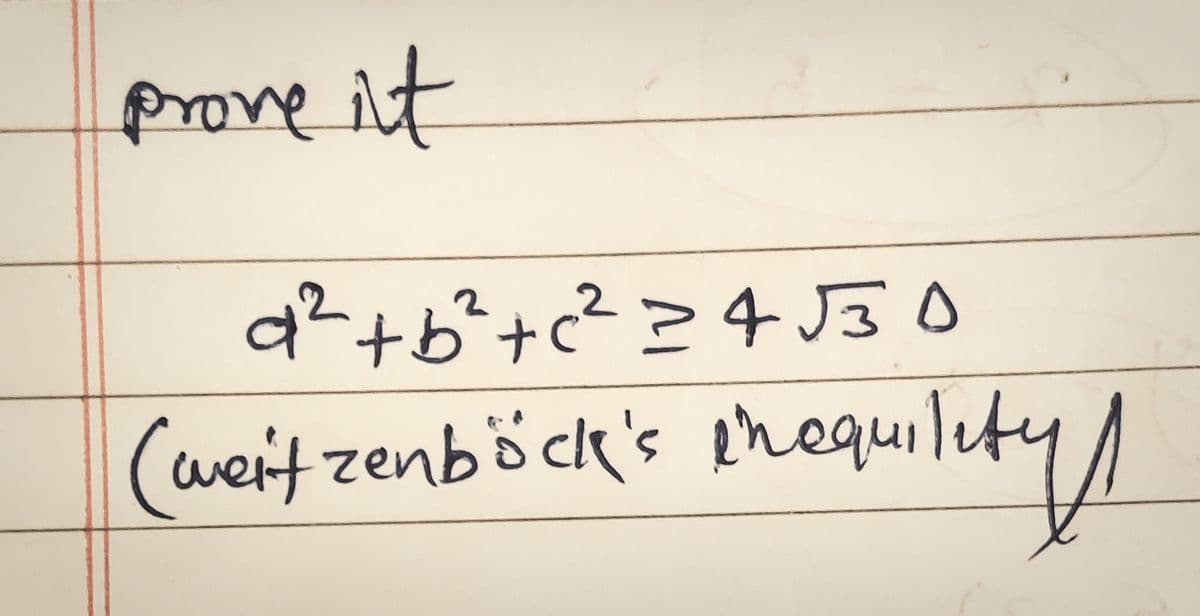 prove it
a² + b² + c² ≥ 4 √3 Δ
(weitzenböck's inequility)